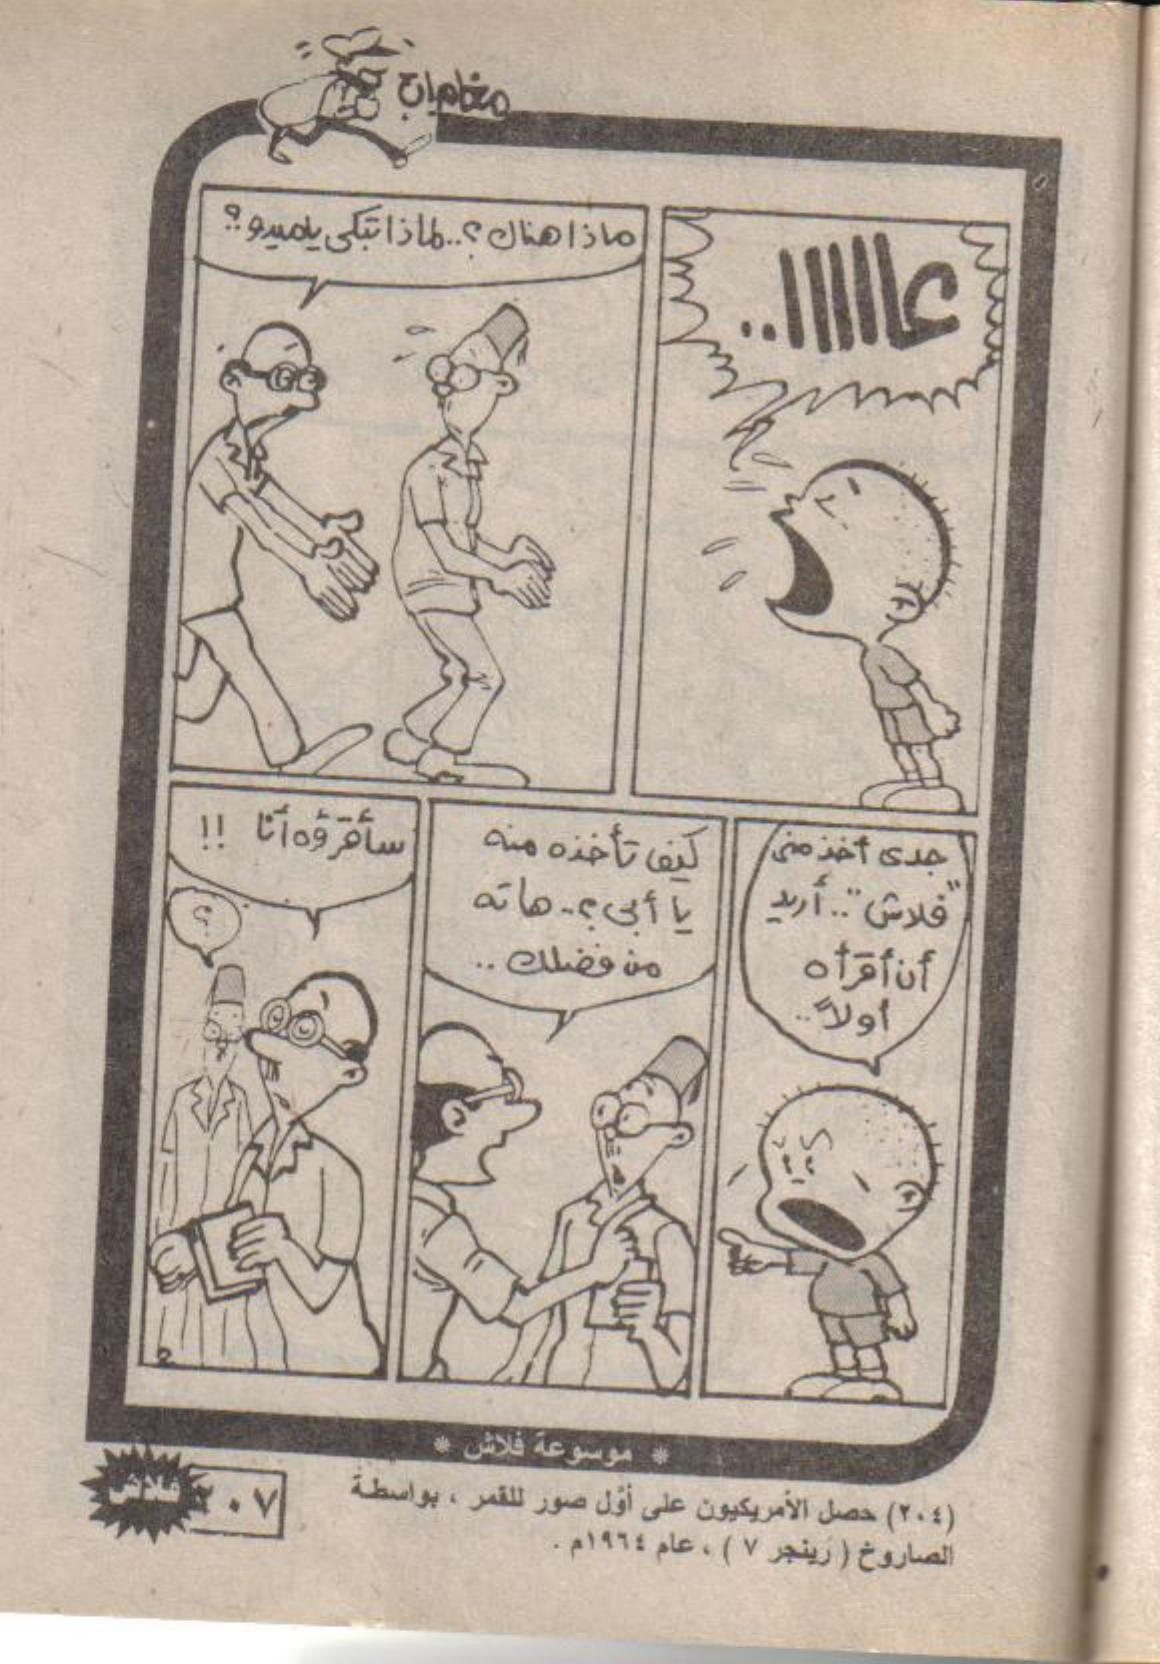 عااااا..
ماذا هناك؟.. لماذا تبكى ياميدو؟
جدى أخذ منى
"فلاش".. أريد
أن أقرأه
أولاً..
كيف تأخذه منه
يا أبى؟.. هاته
من فضلك..
سأقرؤه أنا !!
؟
* موسوعة فلاش *
(٢٠٤) حصل الأمريكيون على أول صور للقمر ، بواسطة
الصاروخ ( رينجر ٧ ) ، عام ١٩٦٤م .
٢٠٧
فلاش